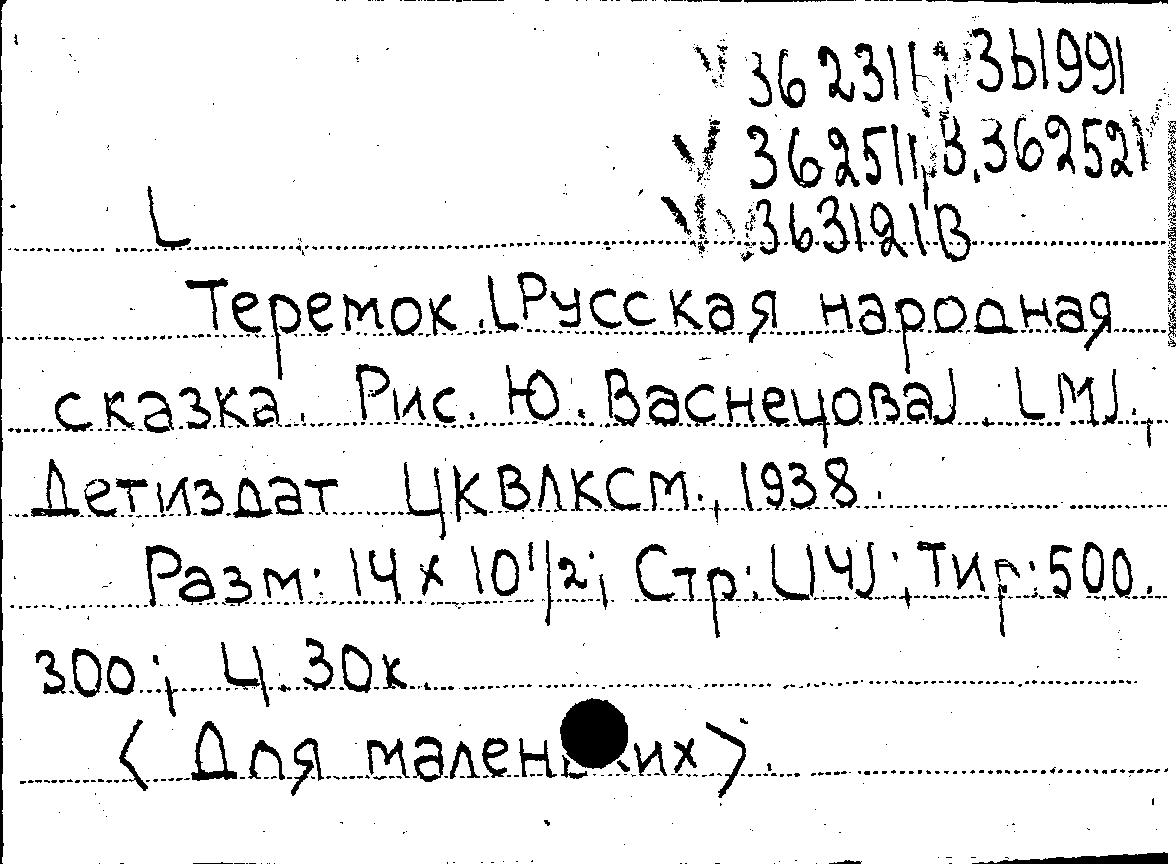 V 362311 V 361991
V 362511, B.362521 V
V V 363121 B
L
Теремок. [Русская народная
сказка. Рис. Ю. Васнецова]. [М].,
Детиздат ЦКВЛКСМ., 1938.
Разм: 14 x 10 1/2; Стр: [14]; Тир: 500.
300; Ц. 30к.
< Для маленьких >.